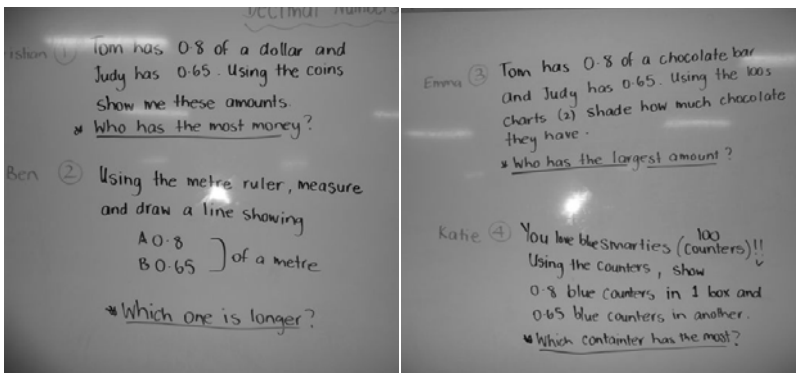 Decimal Numbers
1 Tom has 0.8 of a dollar and
Judy has 0.65. Using the coins
show me these amounts.
* Who has the most money?
Ben 2 Using the metre ruler, measure
and draw a line showing
A 0.8
B 0.65 ] of a metre
* Which one is longer?
Emma 3 Tom has 0.8 of a chocolate bar
and Judy has 0.65. Using the 100s
charts (2) shade how much chocolate
they have.
* Who has the largest amount?
Katie 4 You love blue smarties (100 counters)!!
Using the counters, show
0.8 blue counters in 1 box and
0.65 blue counters in another.
* Which containter has the most?